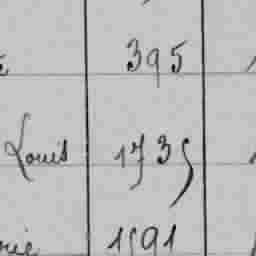 395
Louis 1735
1591